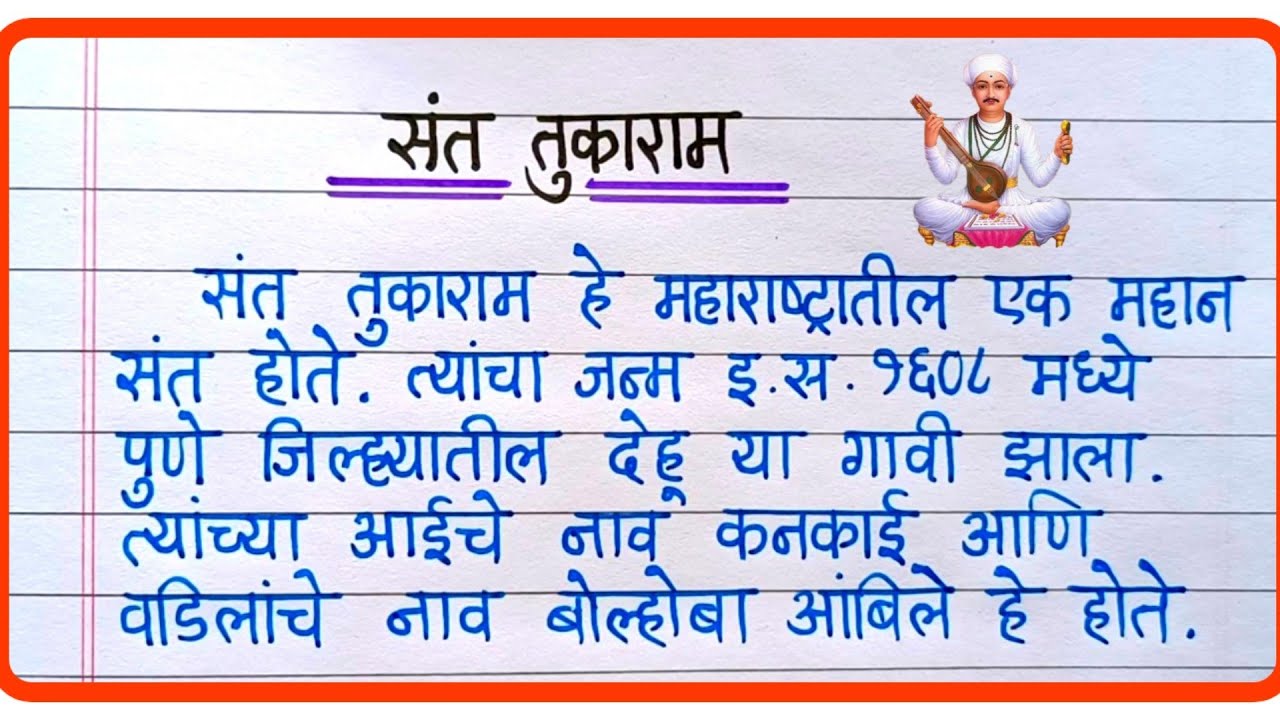 संत तुकाराम
संत तुकाराम हे महाराष्ट्रातील एक महान
संत होते. त्यांचा जन्म इ.स. १६०८ मध्ये
पुणे जिल्ह्यातील देहू या गावी झाला.
त्यांच्या आईचे नाव कनकाई आणि
वडिलांचे नाव बोल्होबा आंबिले हे होते.